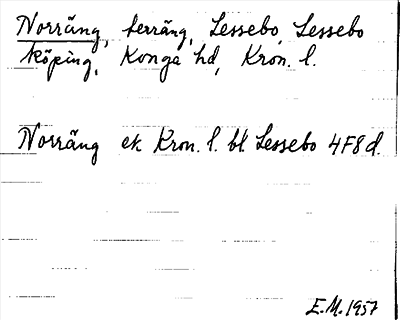 Norräng, terräng, Lessebo, Lessebo
köping, Konga hd, Kron. l.
Norräng ek Kron. l. bl. Lessebo 4F8d.
E.M. 1957